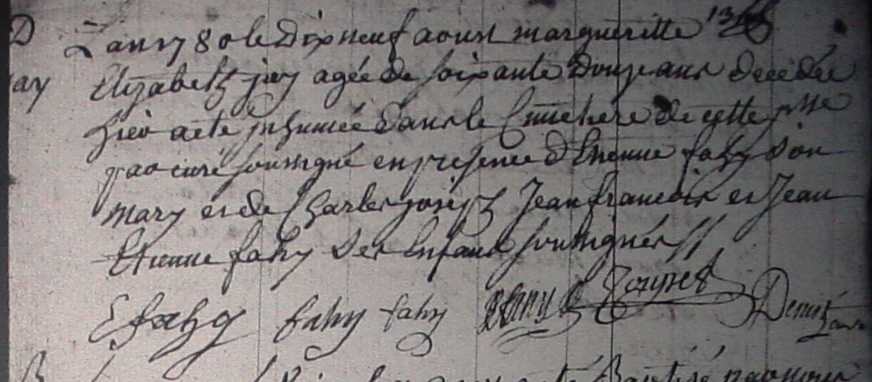 D
L'an 1780 le Dixneuf aoust marguerite
ay Elizabeth joy agée de soixante Douze ans decedée
hier a été inhumée dans le Cimetiere de cette psse
par curé soussigné en presence d'Etienne fahy son
mary et de Charles joseph Jean francois et Jean
Etienne fahy Ses Enfans soussignés
E fahy fahy fahy Denis
B Baptisé